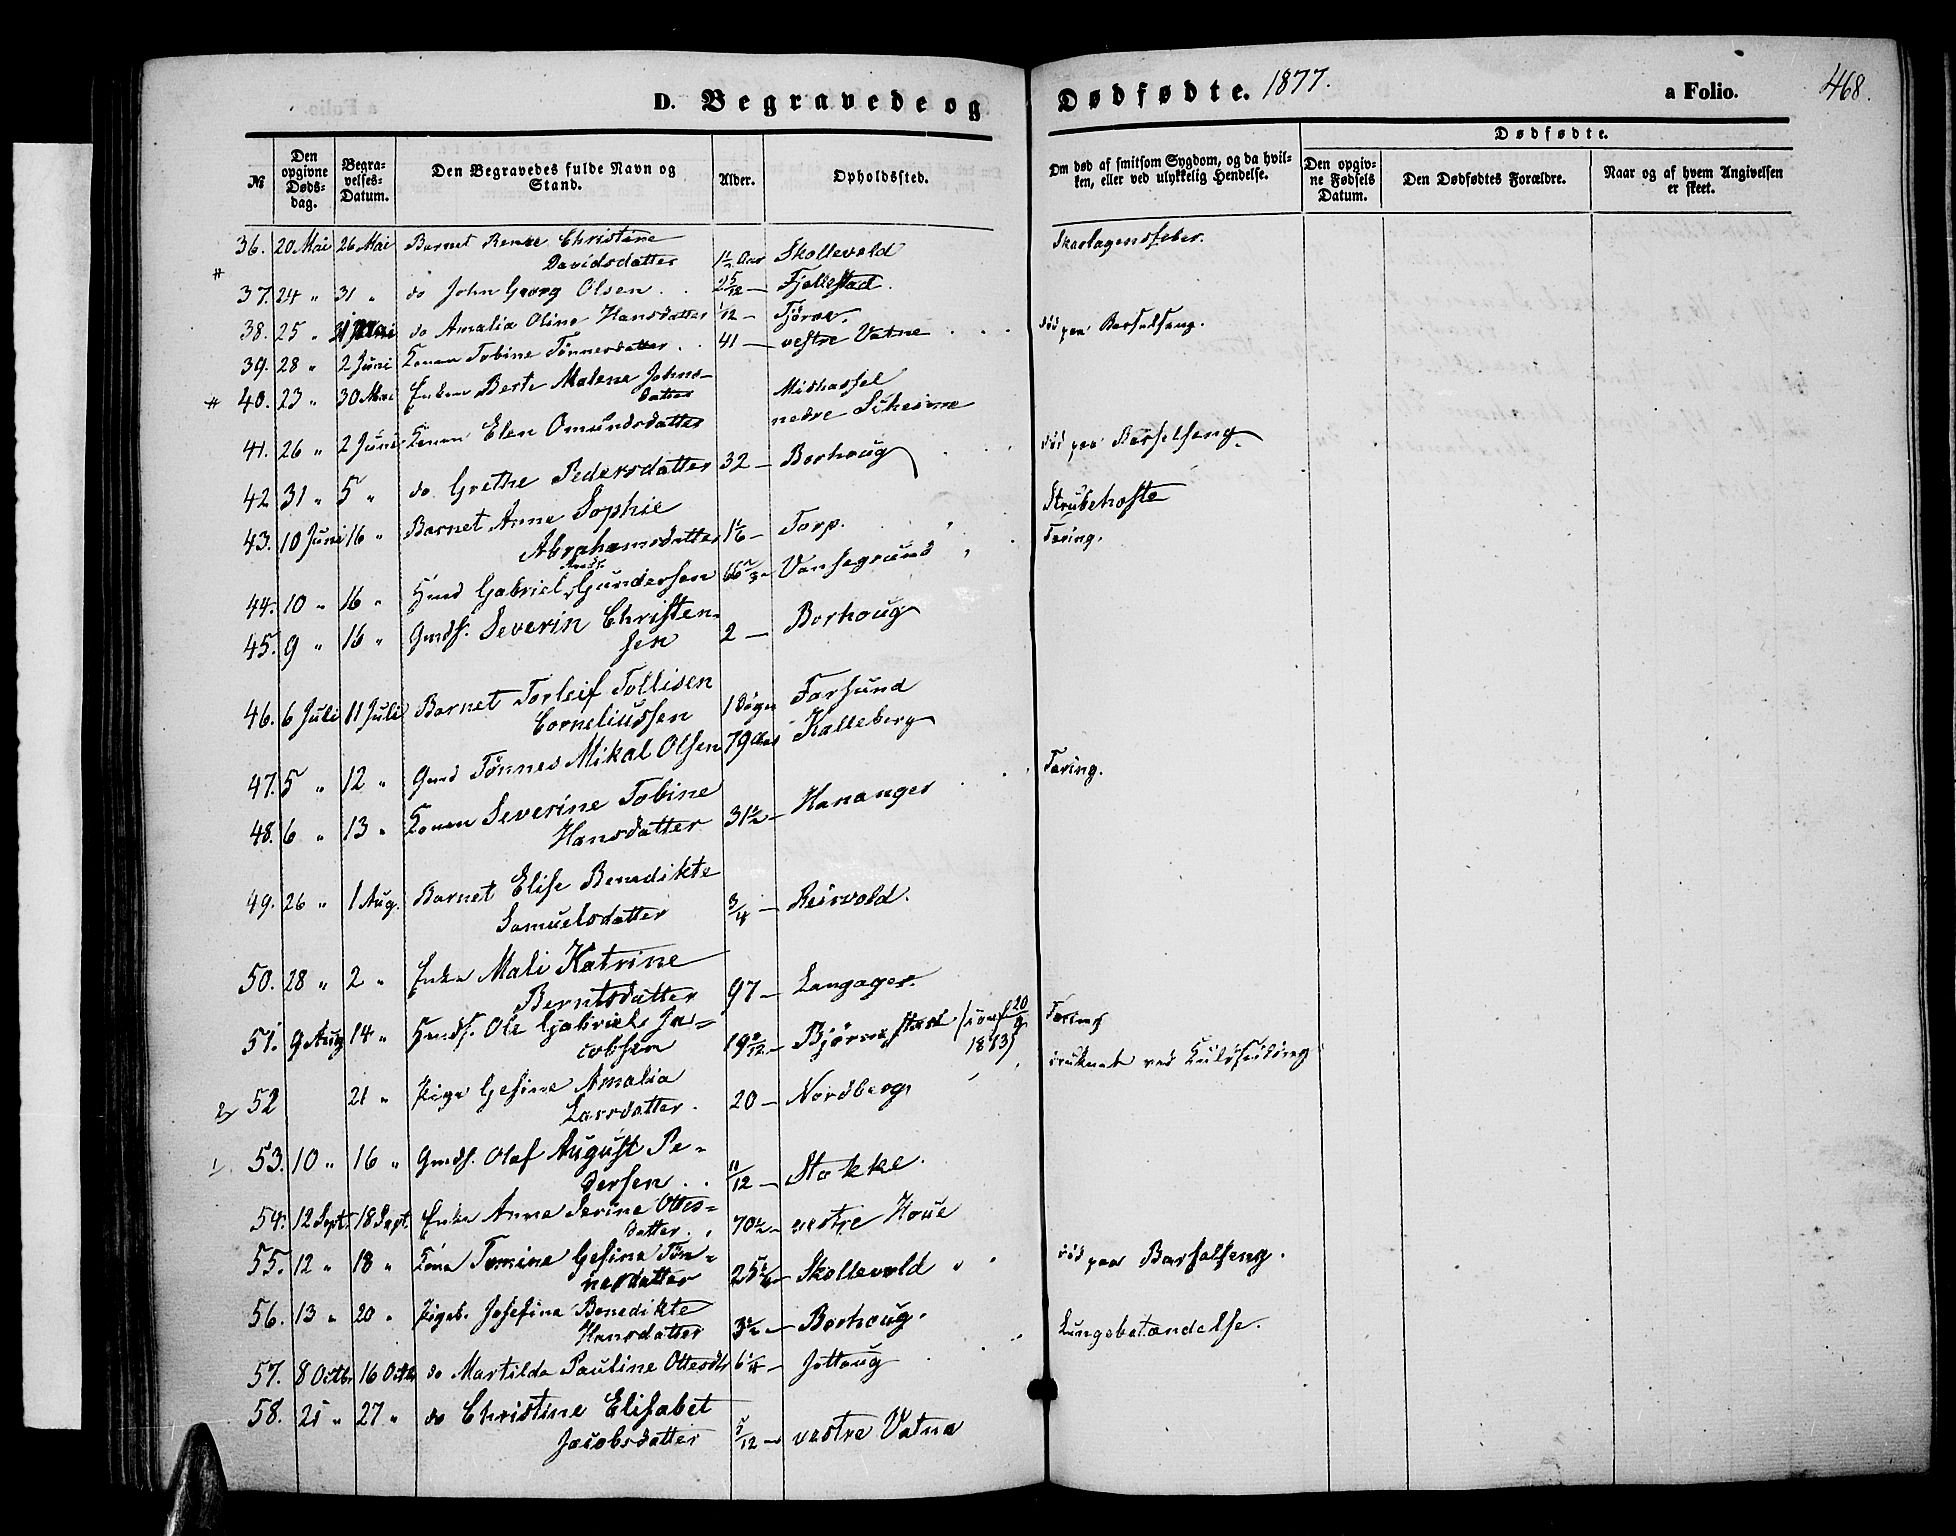 D. Begravede og Dødfødte. 1877. a Folio. 468.
Dødfødte.
№ Den opgivne Døds-dag. Begra-velses-Datum. Den Begravedes fulde Navn og Stand. Alder. Opholdssted. Om død af smitsom Sygdom, og da hvil-ken, eller ved ulykkelig Hendelse. Den opgiv-ne Fødsels Datum. Den Dødfødtes Forældre. Naar og af hvem Angivelsen er skeet.
36. 20 Mai 26 Mai Barnet Christine
Davidsdatter 1½ Aar Skollevold Skarlagensfeber.
37. 24 " 31 " do John Georg Olsen . . 2 5/12 — Fjellestad.
38. 25 " Mai do Amalia Oline Hansdatter 1/12 — Tjørve.
39. 28 " 2 Juni Konen Tobine Tønnesdatter . . 41 — vestre Vatne død paa Barselseng.
40. 23 " 30 Mai Enken Berte Malene Johns-
datter Midhassel
41. 26 " 2 Juni Konen Elen Omundsdatter nedre
42. 31 " 5 " do Grethe Pedersdatter 32 — Borhoug død paa Barselseng.
43. 10 Juni 16 " Barnet Anne Sophie
Abrahamsdatter 1½ — Torp. Strubehoste
44. 10 " 16 " Gmd Gabriel Gundersen Vansegrund Tæring.
45. 9 " 16 " Gmds. Severin Christen-
sen 2 — Borhoug
46. 6 Juli 11 Juli Barnet Torleif Tollisen
Corneliussen 1 Døgn Farsund
47. 5 " 12 " Gmd Tønnes Mikal Olsen 79 Aar Kalleberg
48. 6 " 13 " Konen Severine Tobine
Hansdatter 31½ — Hananger Tæring.
49. 26 " 1 Aug. Barnet Elise Benedikte
Samuelsdatter 3/4 — Reirvold.
50. 28 " 2 " Enke Mali Katrine
Berntsdatter 97 — Langager.
51. 9 Aug 14 " Gmds. Ole Gabriels Ja=
cobsen Bjørnestad Tæring
52 21 " Pige Gesine Amalia
Larsdatter. 20 — Nordberg druknet ved
53. 10 " 16 " Gmds. Olaf August Pe-
dersen . . 11/12 — Stokke.
54. 12 Sept. 18 Sept. Enke Anne Serine Ottes-
datter . . 70½ — vestre Houe
55. 12 " 18 " Kone Tomine Gesine Tøn-
nesdatter Skollevold død paa Barselseng.
56. 13 " 20 " Pigeb. Josefine Benedikte
Hansdatter 3½ — Borhoug.
57. 8 Octb. 16 Octb. do Martilde Pauline Ottesdtr 6¼ — Jølloug Lungebetændelse.
58. 21 " 27 " do Christine Elisabet
Jacobsdatter 5/12 — vestre Vatne